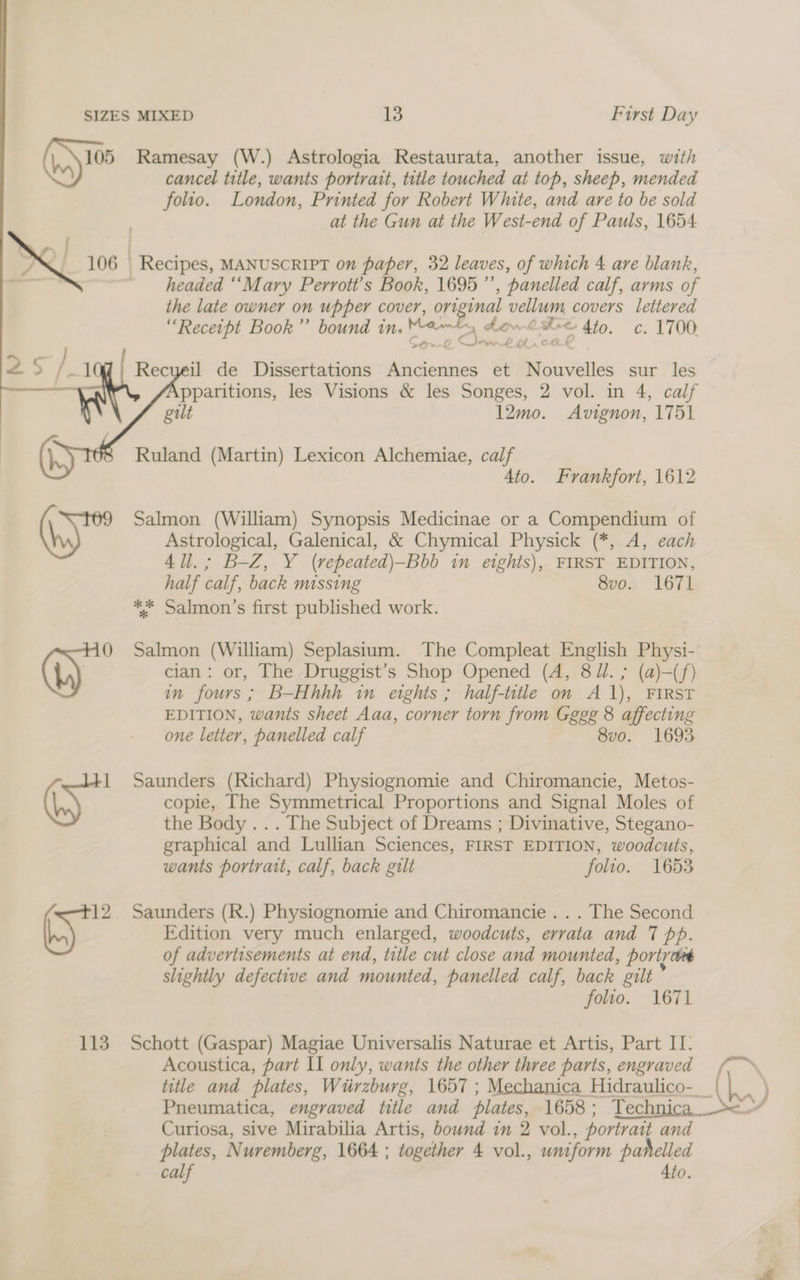 SIZES MIXED 13 First Day
105 Ramesay (W.) Astrologia Restaurata, another issue, with
cancel title, wants portrait, title touched at top, sheep, mended
folio. London, Printed for Robert White, and are to be sold
at the Gun at the West-end of Pauls, 1654
106 Recipes, MANUSCRIPT on paper, 32 leaves, of which 4 are blank,
headed “Mary Perrott's Book, 1695”, panelled calf, arms of
the late owner on upper cover, original vellum covers lettered
“Receipt Book” bound in. 4to. c. 1700
25/- 107 Recueil de Dissertations Anciennes et Nouvelles sur les
Apparitions, les Visions & les Songes, 2 vol. in 4, calf
gilt 12mo. Avignon, 1751
108 Ruland (Martin) Lexicon Alchemiae, calf
4to. Frankfort, 1612
109 Salmon (William) Synopsis Medicinae or a Compendium of
Astrological, Galenical, & Chymical Physick (*, A, each
4 ll.; B–Z, Y (repeated)–Bbb in eights), FIRST EDITION,
half calf, back missing 8vo. 1671
*** Salmon's first published work.
110 Salmon (William) Seplasium. The Compleat English Physi-
cian: or, The Druggist's Shop Opened (A, 8 ll.; (a)–(f)
in fours; B–Hhhh in eights; half-title on A 1), FIRST
EDITION, wants sheet Aaa, corner torn from Gggg 8 affecting
one letter, panelled calf 8vo. 1693
111 Saunders (Richard) Physiognomie and Chiromancie, Metos-
copie, The Symmetrical Proportions and Signal Moles of
the Body ... The Subject of Dreams; Divinative, Stegano-
graphical and Lullian Sciences, FIRST EDITION, woodcuts,
wants portrait, calf, back gilt folio. 1653
112 Saunders (R.) Physiognomie and Chiromancie ... The Second
Edition very much enlarged, woodcuts, errata and 7 pp.
of advertisements at end, title cut close and mounted, portrait
slightly defective and mounted, panelled calf, back gilt
folio. 1671
113 Schott (Gaspar) Magiae Universalis Naturae et Artis, Part II.
Acoustica, part II only, wants the other three parts, engraved
title and plates, Würzburg, 1657; Mechanica Hidraulico-
Pneumatica, engraved title and plates, 1658; Technica
Curiosa, sive Mirabilia Artis, bound in 2 vol., portrait and
plates, Nuremberg, 1664; together 4 vol., uniform panelled
calf 4to.